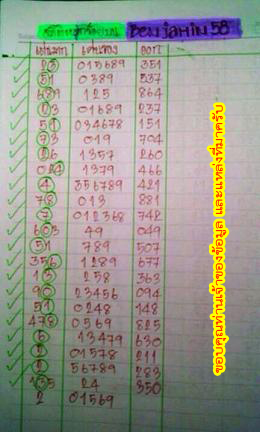 Benjamin 58
เด่นมาก เด่นรอง ออก
23 015689 351
51 0389 537
689 125 864
23 01689 237
51 034678 151
73 019 704
26 1357 260
024 1379 466
4 356789 421
78 013 881
7 012368 742
603 49 049
51 789 507
356 1289 677
13 258 363
90 23456 094
51 0248 148
478 0569 825
6 13479 630
2 01578 211
2 56789 283
135 24 350
2 01569
ขอบคุณท่านเจ้าของข้อมูล และแหล่งที่มาครับ